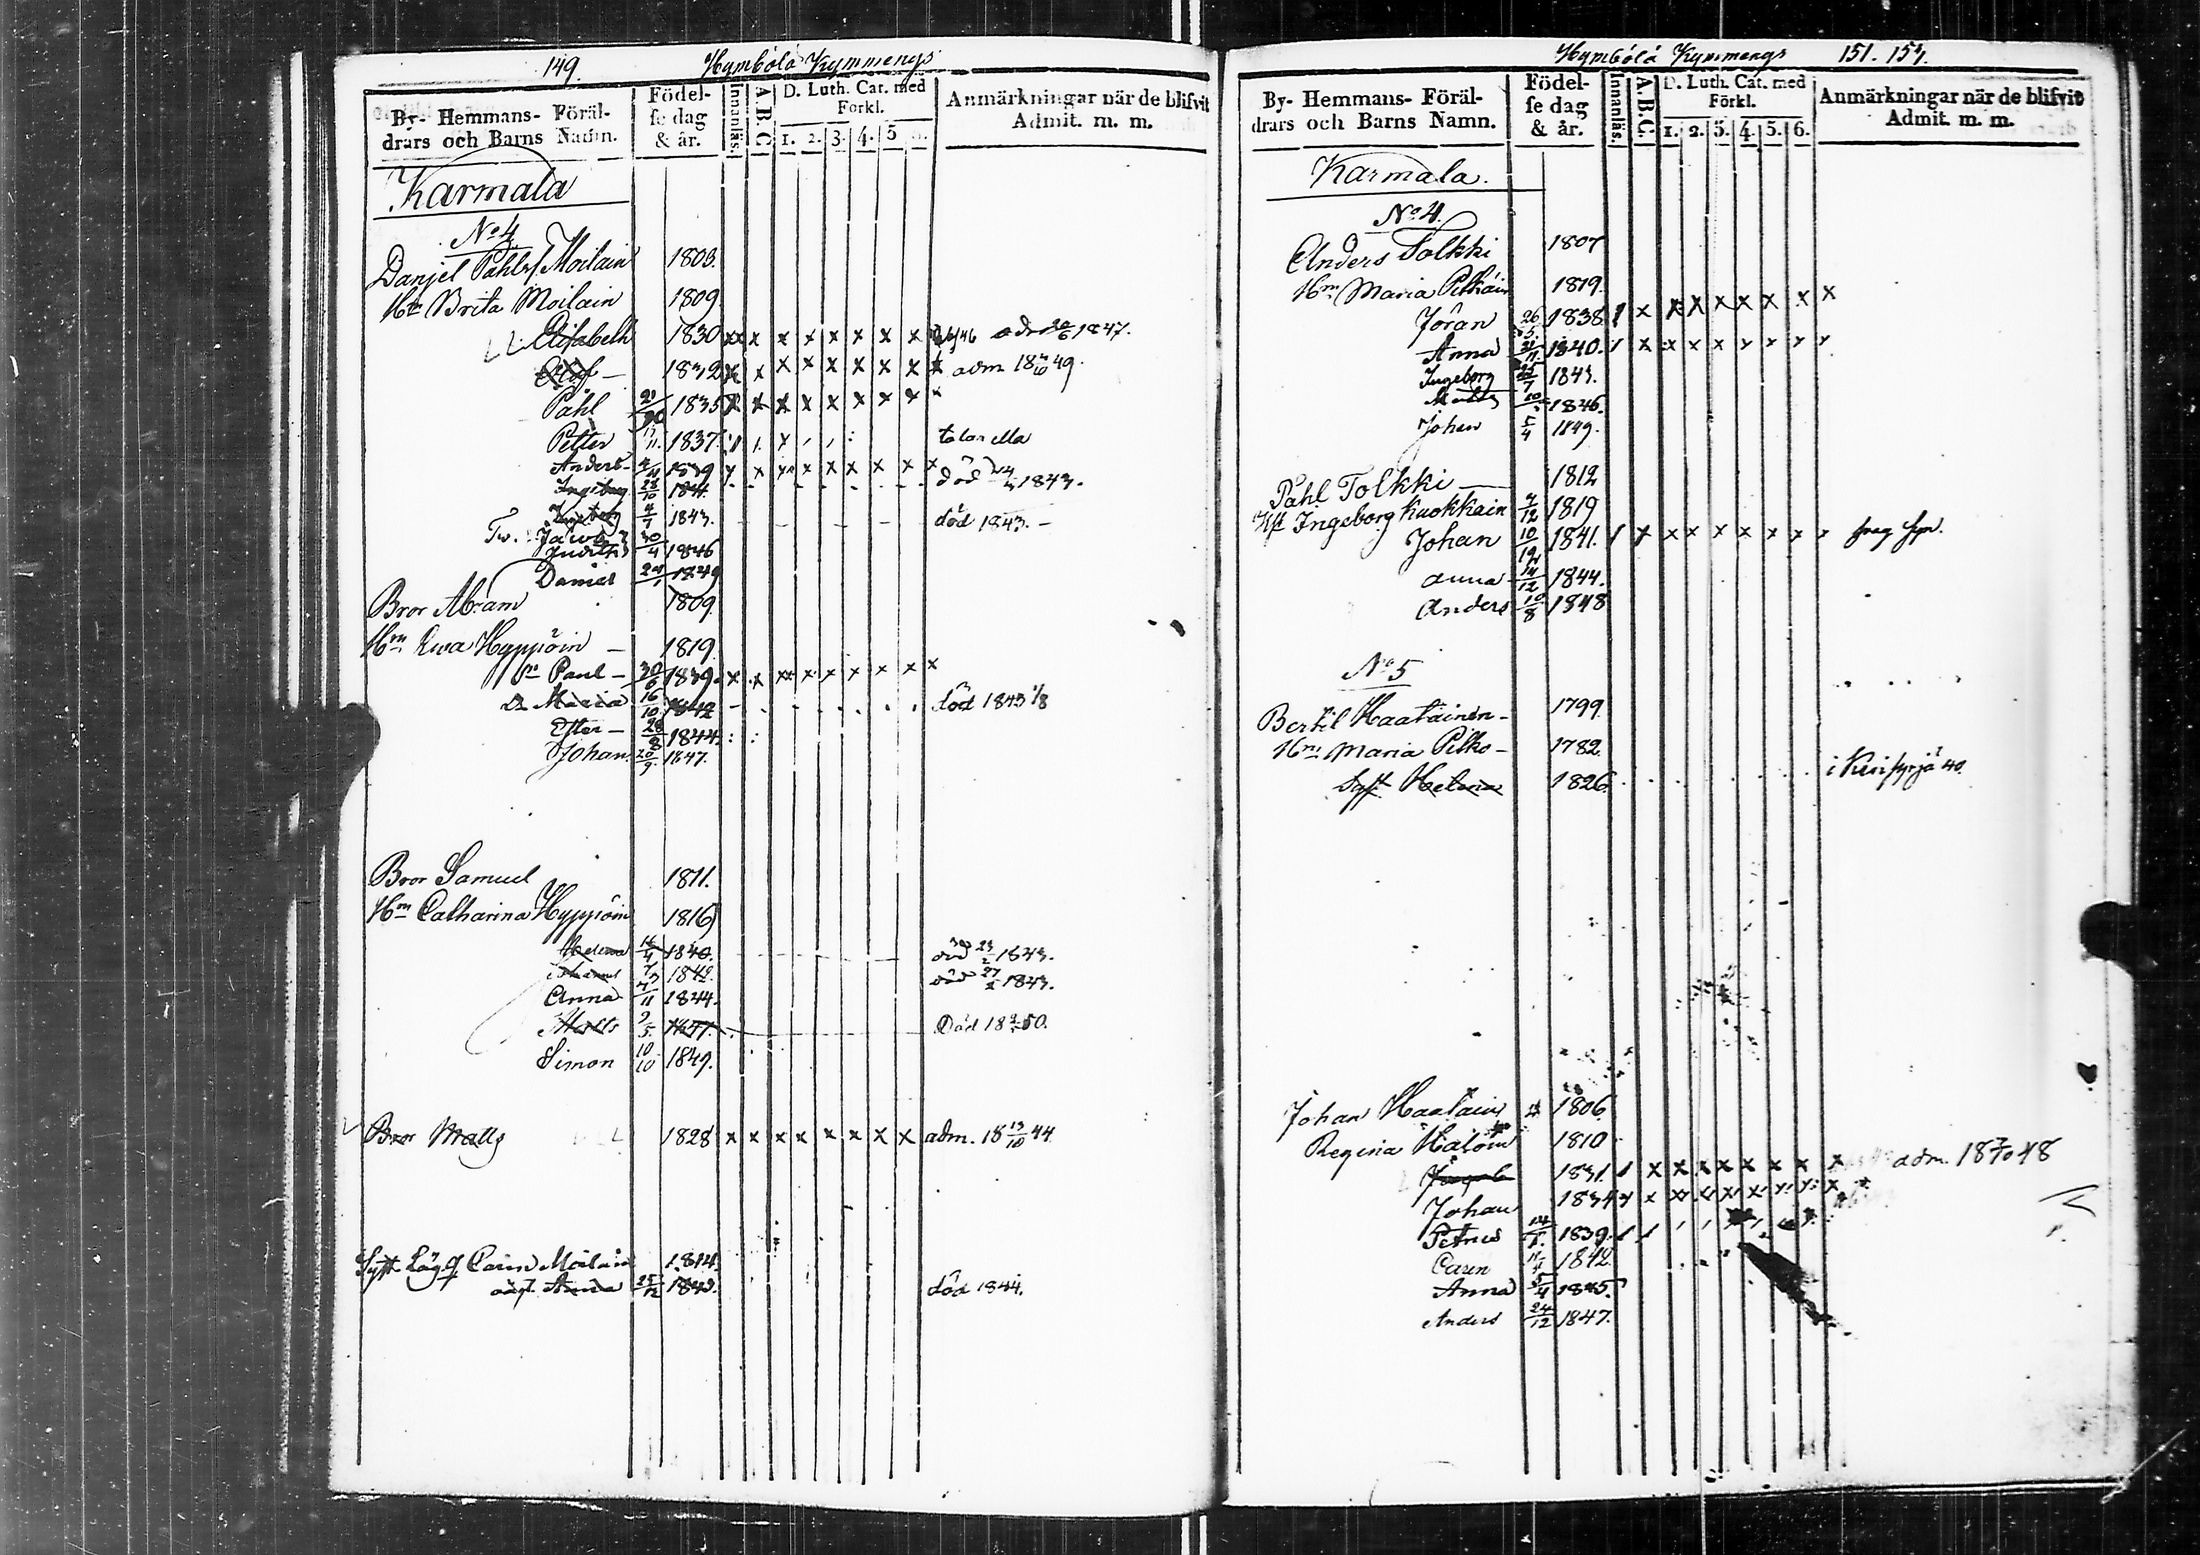 149. Hymbölä Kymmengs
By- Hemmans- Föräl-
drars och Barns Namn.
Födel-
se dag
& år.
Innanläs.
A.B.C.
D. Luth. Cat. med
Förkl.
1. 2. 3. 4. 5
Anmärkningar när de blifvit
Admit. m. m.
Karmala
No 4
Danjel Påhls. Moilain 1803.
Hu Brita Moilain 1809
Elisabeth 1830 x x x x x x x x 1847.
Olof — 1832 x x x x x x x x adm 18 49.
Påhl 1835 x x x x x x x x
Petter 1837. talar illa
Anders 1839 x x x x x x x x
Ingeborg 28/10 1841. död 1843.
4/7 1843. död 1843. —
Tw. Jacob
Judith 30/4 1846
Daniel 1849
Bror Abram 1809
Hm Ewa Hyppöin — 1819
Sn Paul — 30/6 1839. x x x x x x x x
Dr Maria 16/10 1842 död 1843 1/8
Ester — 28/8 1844.
Johan. 20/9. 1847.
Bror Samuel 1811.
Hm Catharina Hyppöin 1816
Helena 1840. död 23/2 1843.
Johannes 1842. död 27/2 1843.
Anna 7/11 1844.
Matts 9/5. 1847. Död 18 50.
Simon 10/10 1849.
Bror Matts 1828 x x x x x x x x adm. 18 13/10 44
Syst. Läg. Carin Moilain 1814.
oägt. Anna 25/12 1843. död 1844.
Hymbölä Kymmengs 151. 153.
By- Hemmans- Föräl-
drars och Barns Namn.
Födel-
se dag
& år.
Innanläs.
A.B.C.
D. Luth. Cat. med
Förkl.
1. 2. 3. 4. 5. 6.
Anmärkningar när de blifvit
Admit. m. m.
Karmala.
No 4.
Anders Tolkki 1807
Hm Maria Pitkäin 1819.
Jöran 26/5. 1838 x x x x x x x x
Anna 21/11 1840. x x x x x x x x
Ingeborg 25/7 1843.
1846.
Johan 5/4 1849.
Påhl Tolkki — 1812
Hst Ingeborg Kuokkain 4/12 1819
Johan 10/12 1841. x x x x x x x x
Anna 14/12 1844.
Anders 10/8 1848
No 5
Bertil Haatainen — 1799
Hm Maria Pitko — 1782
Syst. Helena 1826. i Kesisyrjä 40.
Johan Haatain 1806
Regina Halöin 1810
1831. x x x x x x x x adm. 18 7/10 48
Johan 1834 x x x x x x x x
Petrus 1839.
Caren 1842
Anna 5/4 1845.
Anders 24/12 1847.